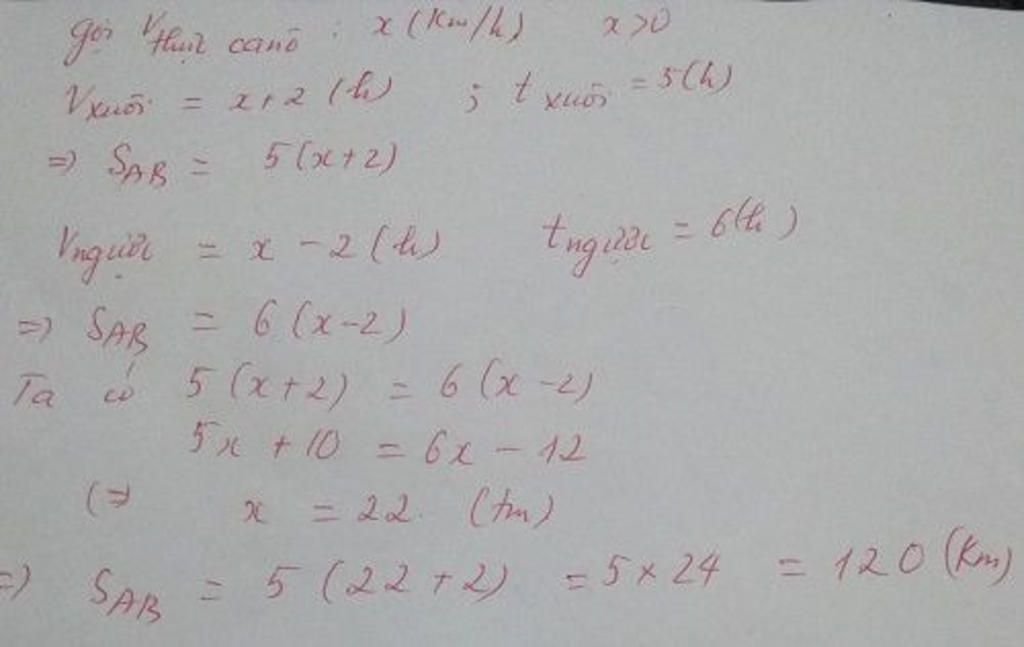 gọi Vthực canô : x (Km/h) x>0
Vxuôi = x+2 (h) ; t xuôi = 5(h)
=> SAB = 5(x+2)
Vngược = x - 2 (h) tngược = 6(h)
=> SAB = 6(x-2)
Ta có 5(x+2) = 6(x-2)
5x + 10 = 6x - 12
(=> x = 22. (tm)
=> SAB = 5(22+2) = 5×24 = 120 (Km)